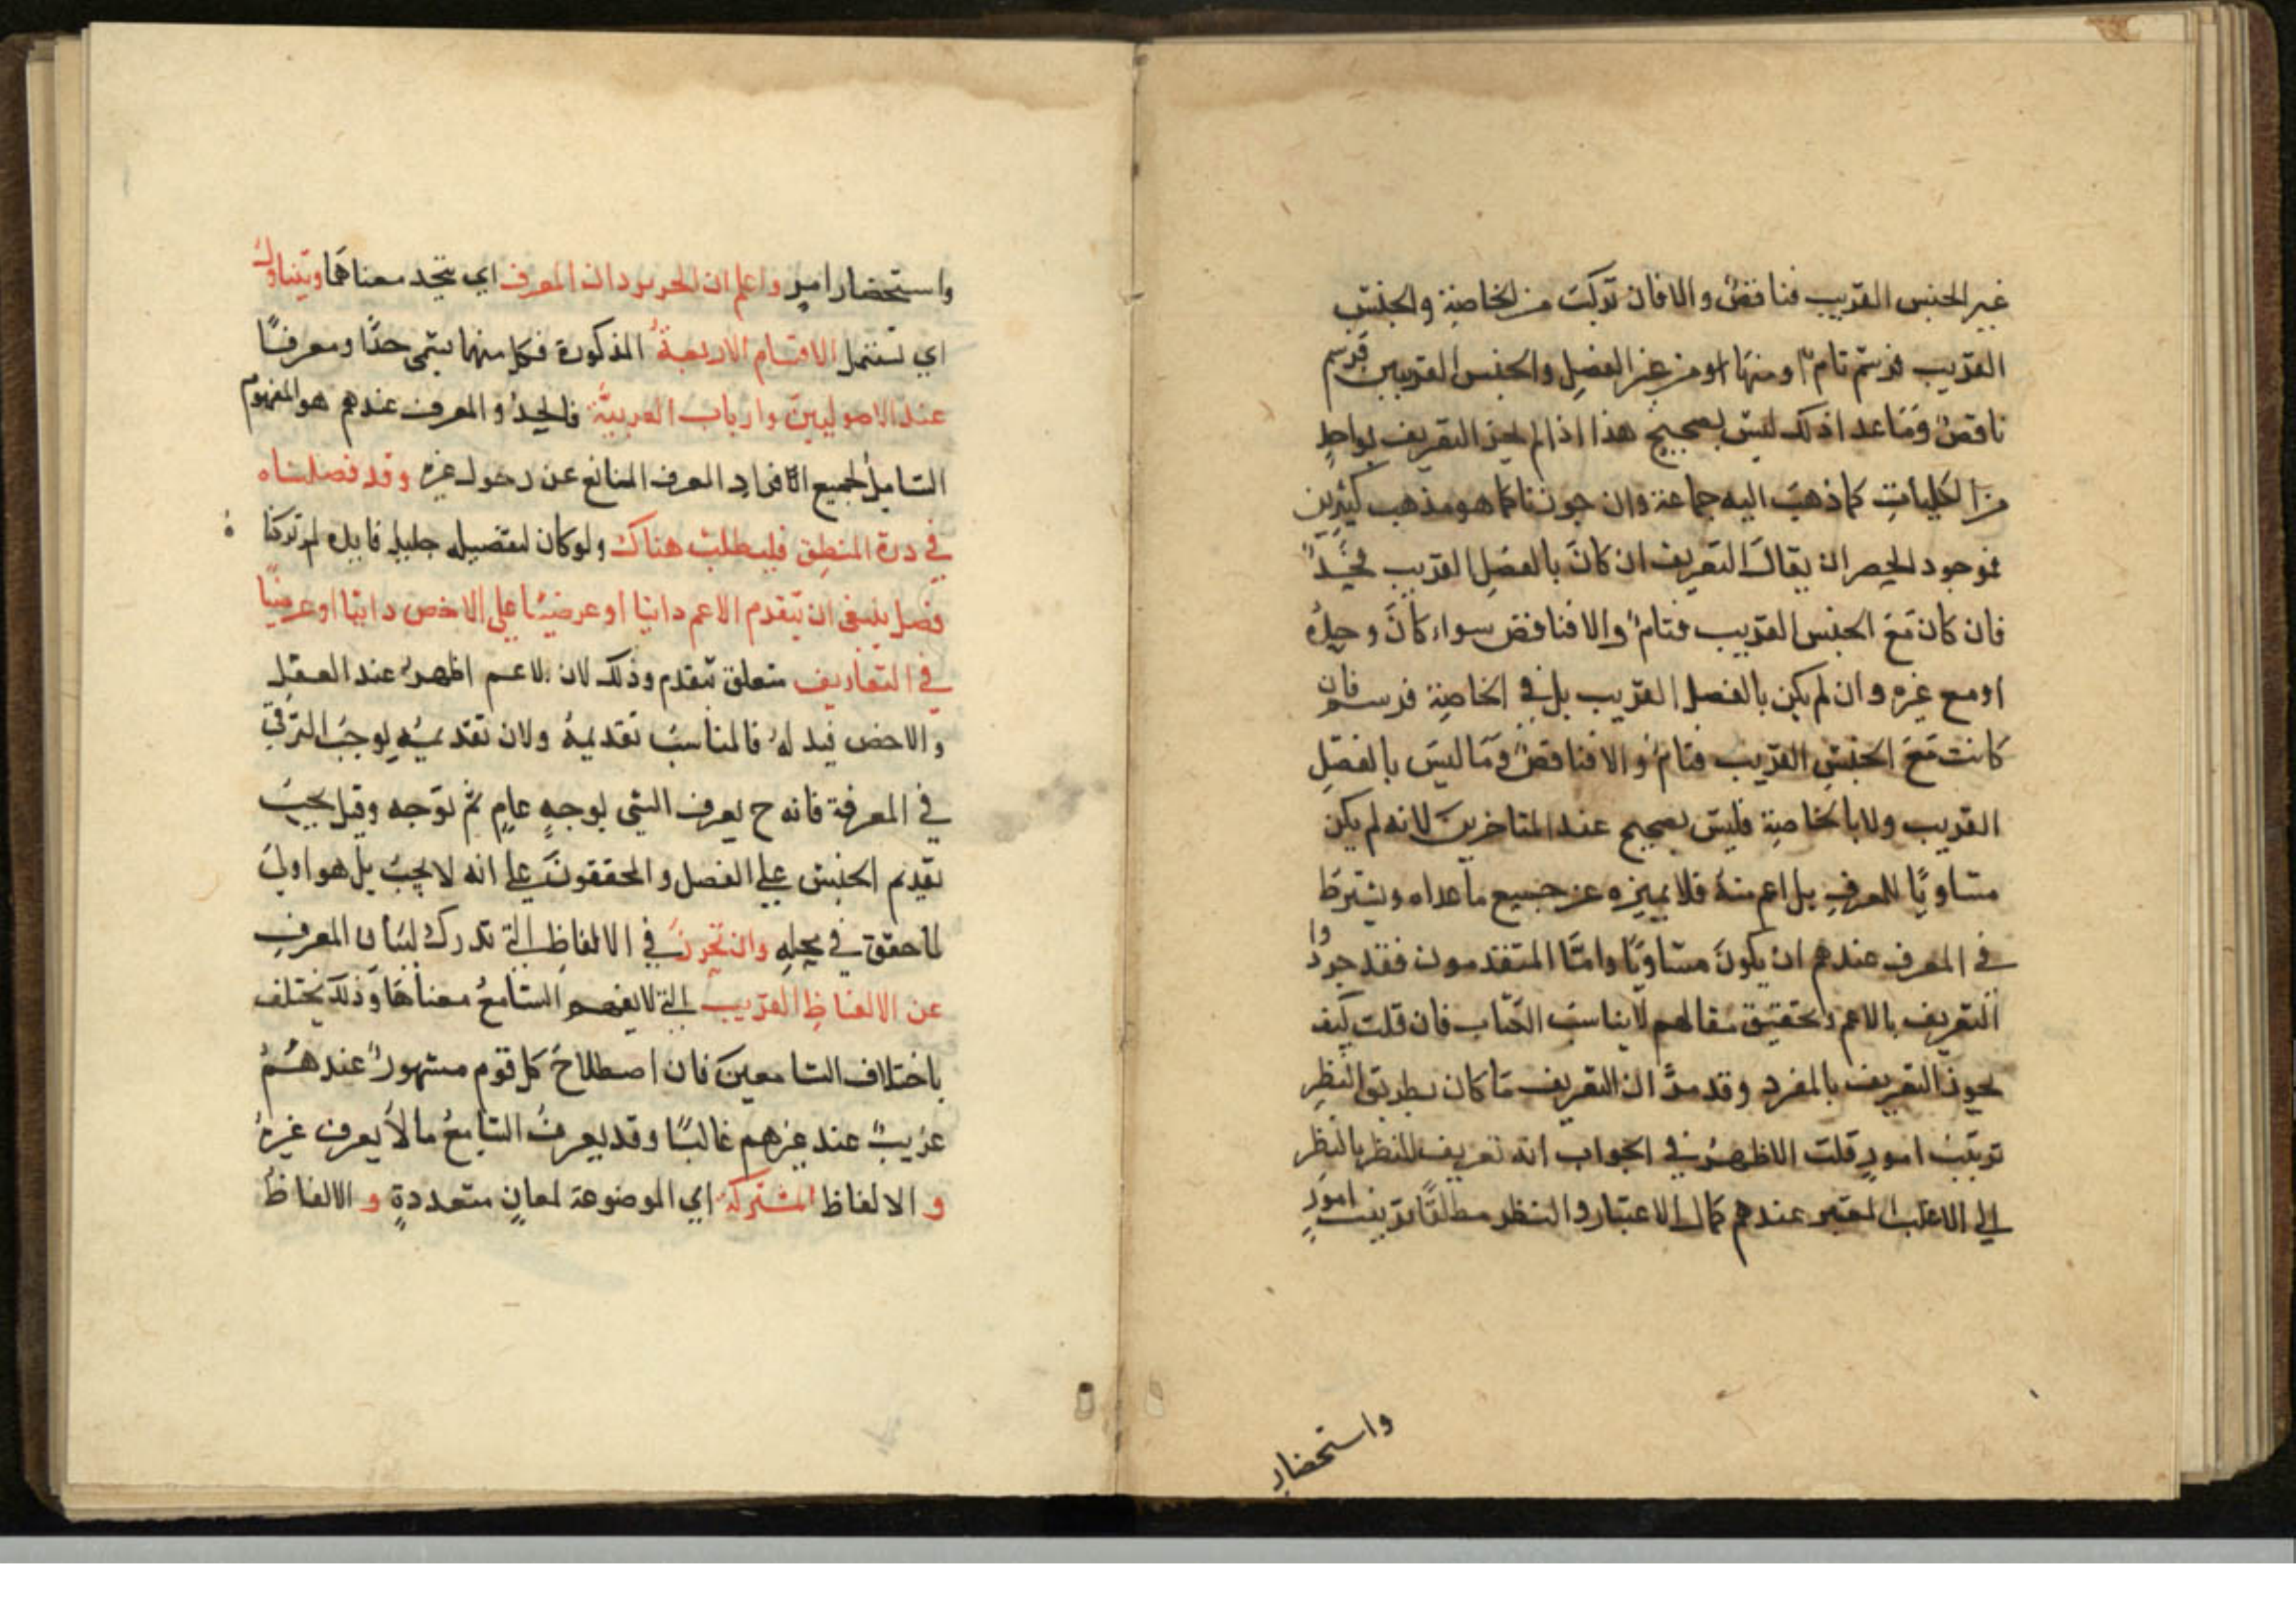 غير الجنس القريب فناقصٌ والا فان تركبت من الخاصة والجنس
القريب فرسم تام او منها او من غير الفصل والجنس القريبين فرسم
ناقص وما عدا ذلك ليس بصحيح هذا اذا لم يجز التعريف بواحدٍ
من الكليات كما ذهب اليه جماعة وان جوزنا كما هو مذهب كثيرين
فوجود الحصر ان يقال التعريف ان كان بالفصل القريب فحدٌّ
فان كان مع الجنس القريب فتامٌ والا فناقص سواء كان وحده
او مع غيره وان لم يكن بالفصل القريب بل في الخاصة فرسم فان
كانت مع الجنس القريب فتامٌ والا فناقصٌ وما ليس بالفصل
القريب ولا بالخاصة فليس بصحيح عند المتاخرين لانه لم يكن
مساويًا للمعرف بل اعم منه فلا يميزه عن جميع ما عداه ويشترط
في المعرف عندهم ان يكون مساويًا وامّا المتقدمون فقد جوزوا
التعريف بالاعم وتحقيق مقالهم لا يناسب الكتاب فان قلت كيف
يجوز التعريف بالمفرد وقد مرّ ان التعريف ما كان بطريق النظر
ترتيب امورٍ قلت الاظهر في الجواب انه تعريف للنظر بالنظر
الي الاغلب المعتبر عندهم كمال الاعتبار والنظر مطلقًا ترتيب امورٍ
واستحضار
واستحضار امرٍ واعلم ان الحد يرد ان المعرف اي يتحد معناهما ويتناول
اي تشتمل الاقسام الاربعة المذكورة فكل منها يسمّى حدًّا ومعرفًا
عند الاصوليين وارباب العربيّة فالحدُّ والمعرف عندهم هو المفهوم
الشامل لجميع الافراد المعرف المانع عن دخول غيره وقد فصلناه
في درة المنطق فليطلب هناك ولو كان لتفصيله جليل فايده لم تركنا ه
فصل ينبغي ان يتقدم الاعم ذاتيا او عرضيًا علي الاخص ذاتيا او عرضيًا
في التعاريف متعلق بتقدم وذلك لان الاعم اظهر عند العقل
والاخص قيد له فالمناسب تقديمهُ ولان تقديمهِ يوجب الترقي
في المعرفة فانه ح يعرف الشي بوجهٍ عامٍ ثم بوجه وقيل يجب
تقديم الجنس علي الفصل والمحققون علي انه لا يجب بل هو اولي
لما حقق في محله وان تحرز في الالفاظ التي تدرك لبيان المعرف
عن الالفاظ الغريب التي لا يفهم السامع معناها وذلك يختلف
باختلاف السامعين فان اصطلاح كل قوم مشهورٌ عندهم
غريبٌ عند غيرهم غالبًا وقد يعرف السامع ما لا يعرف غيره
و الالفاظ المشتركة اي الموضوعة لمعانٍ متعددةٍ و الالفاظ